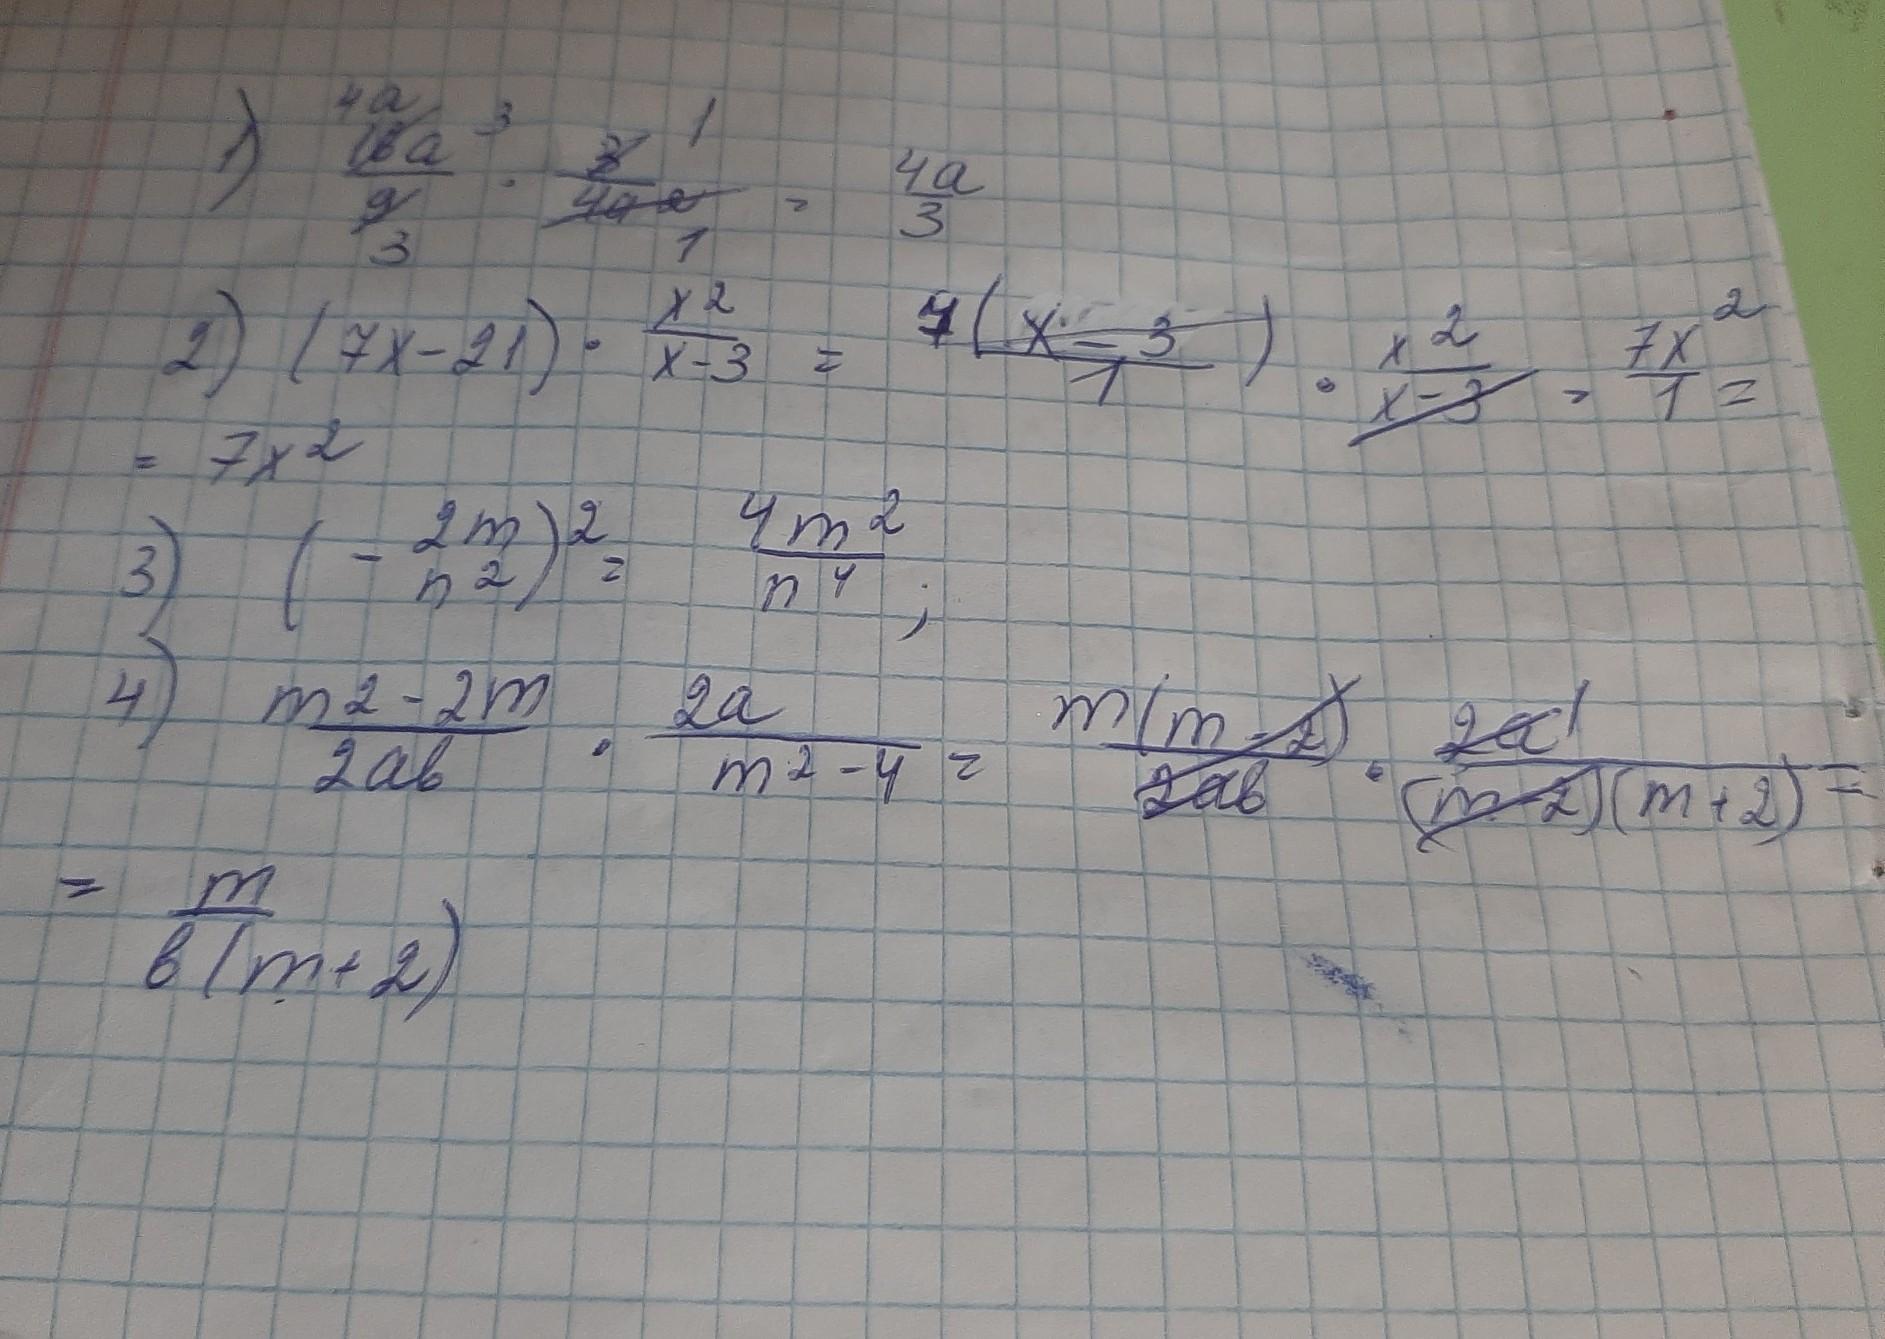 1) 16a³/9 · 3/4a² = 4a/3
2) (7x-21) · x²/x-3 = 7(x-3)/1 · x²/x-3 = 7x²/1 =
= 7x²
3) (- 2m/n²)² = 4m²/n⁴ ;
4) m²-2m/2ab · 2a/m²-4 = m(m-2)/2ab · 2a/(m-2)(m+2) =
= m/b(m+2)